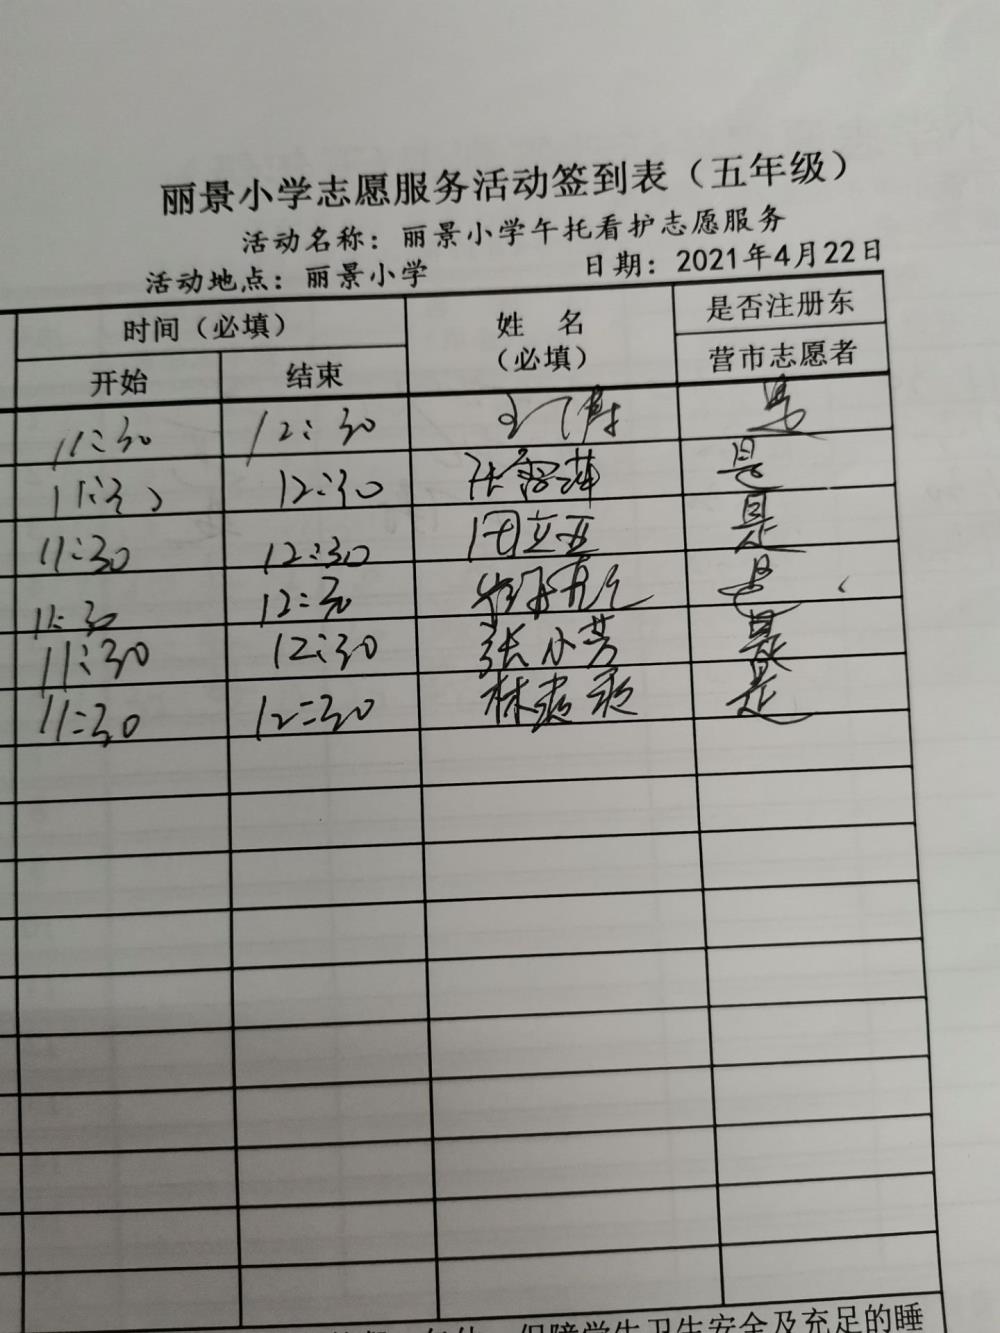 丽景小学志愿服务活动签到表（五年级）
活动名称：丽景小学午托看护志愿服务
活动地点：丽景小学 日期：2021年4月22日
时间（必填） 姓 名 是否注册东
开始 结束 （必填） 营市志愿者
11:30 12:30 是
11:30 12:30 是
11:30 12:30 是
11:30 12:30 是
11:30 12:30 张小芳 是
11:30 12:30 林 是
保障学生卫生安全及充足的睡